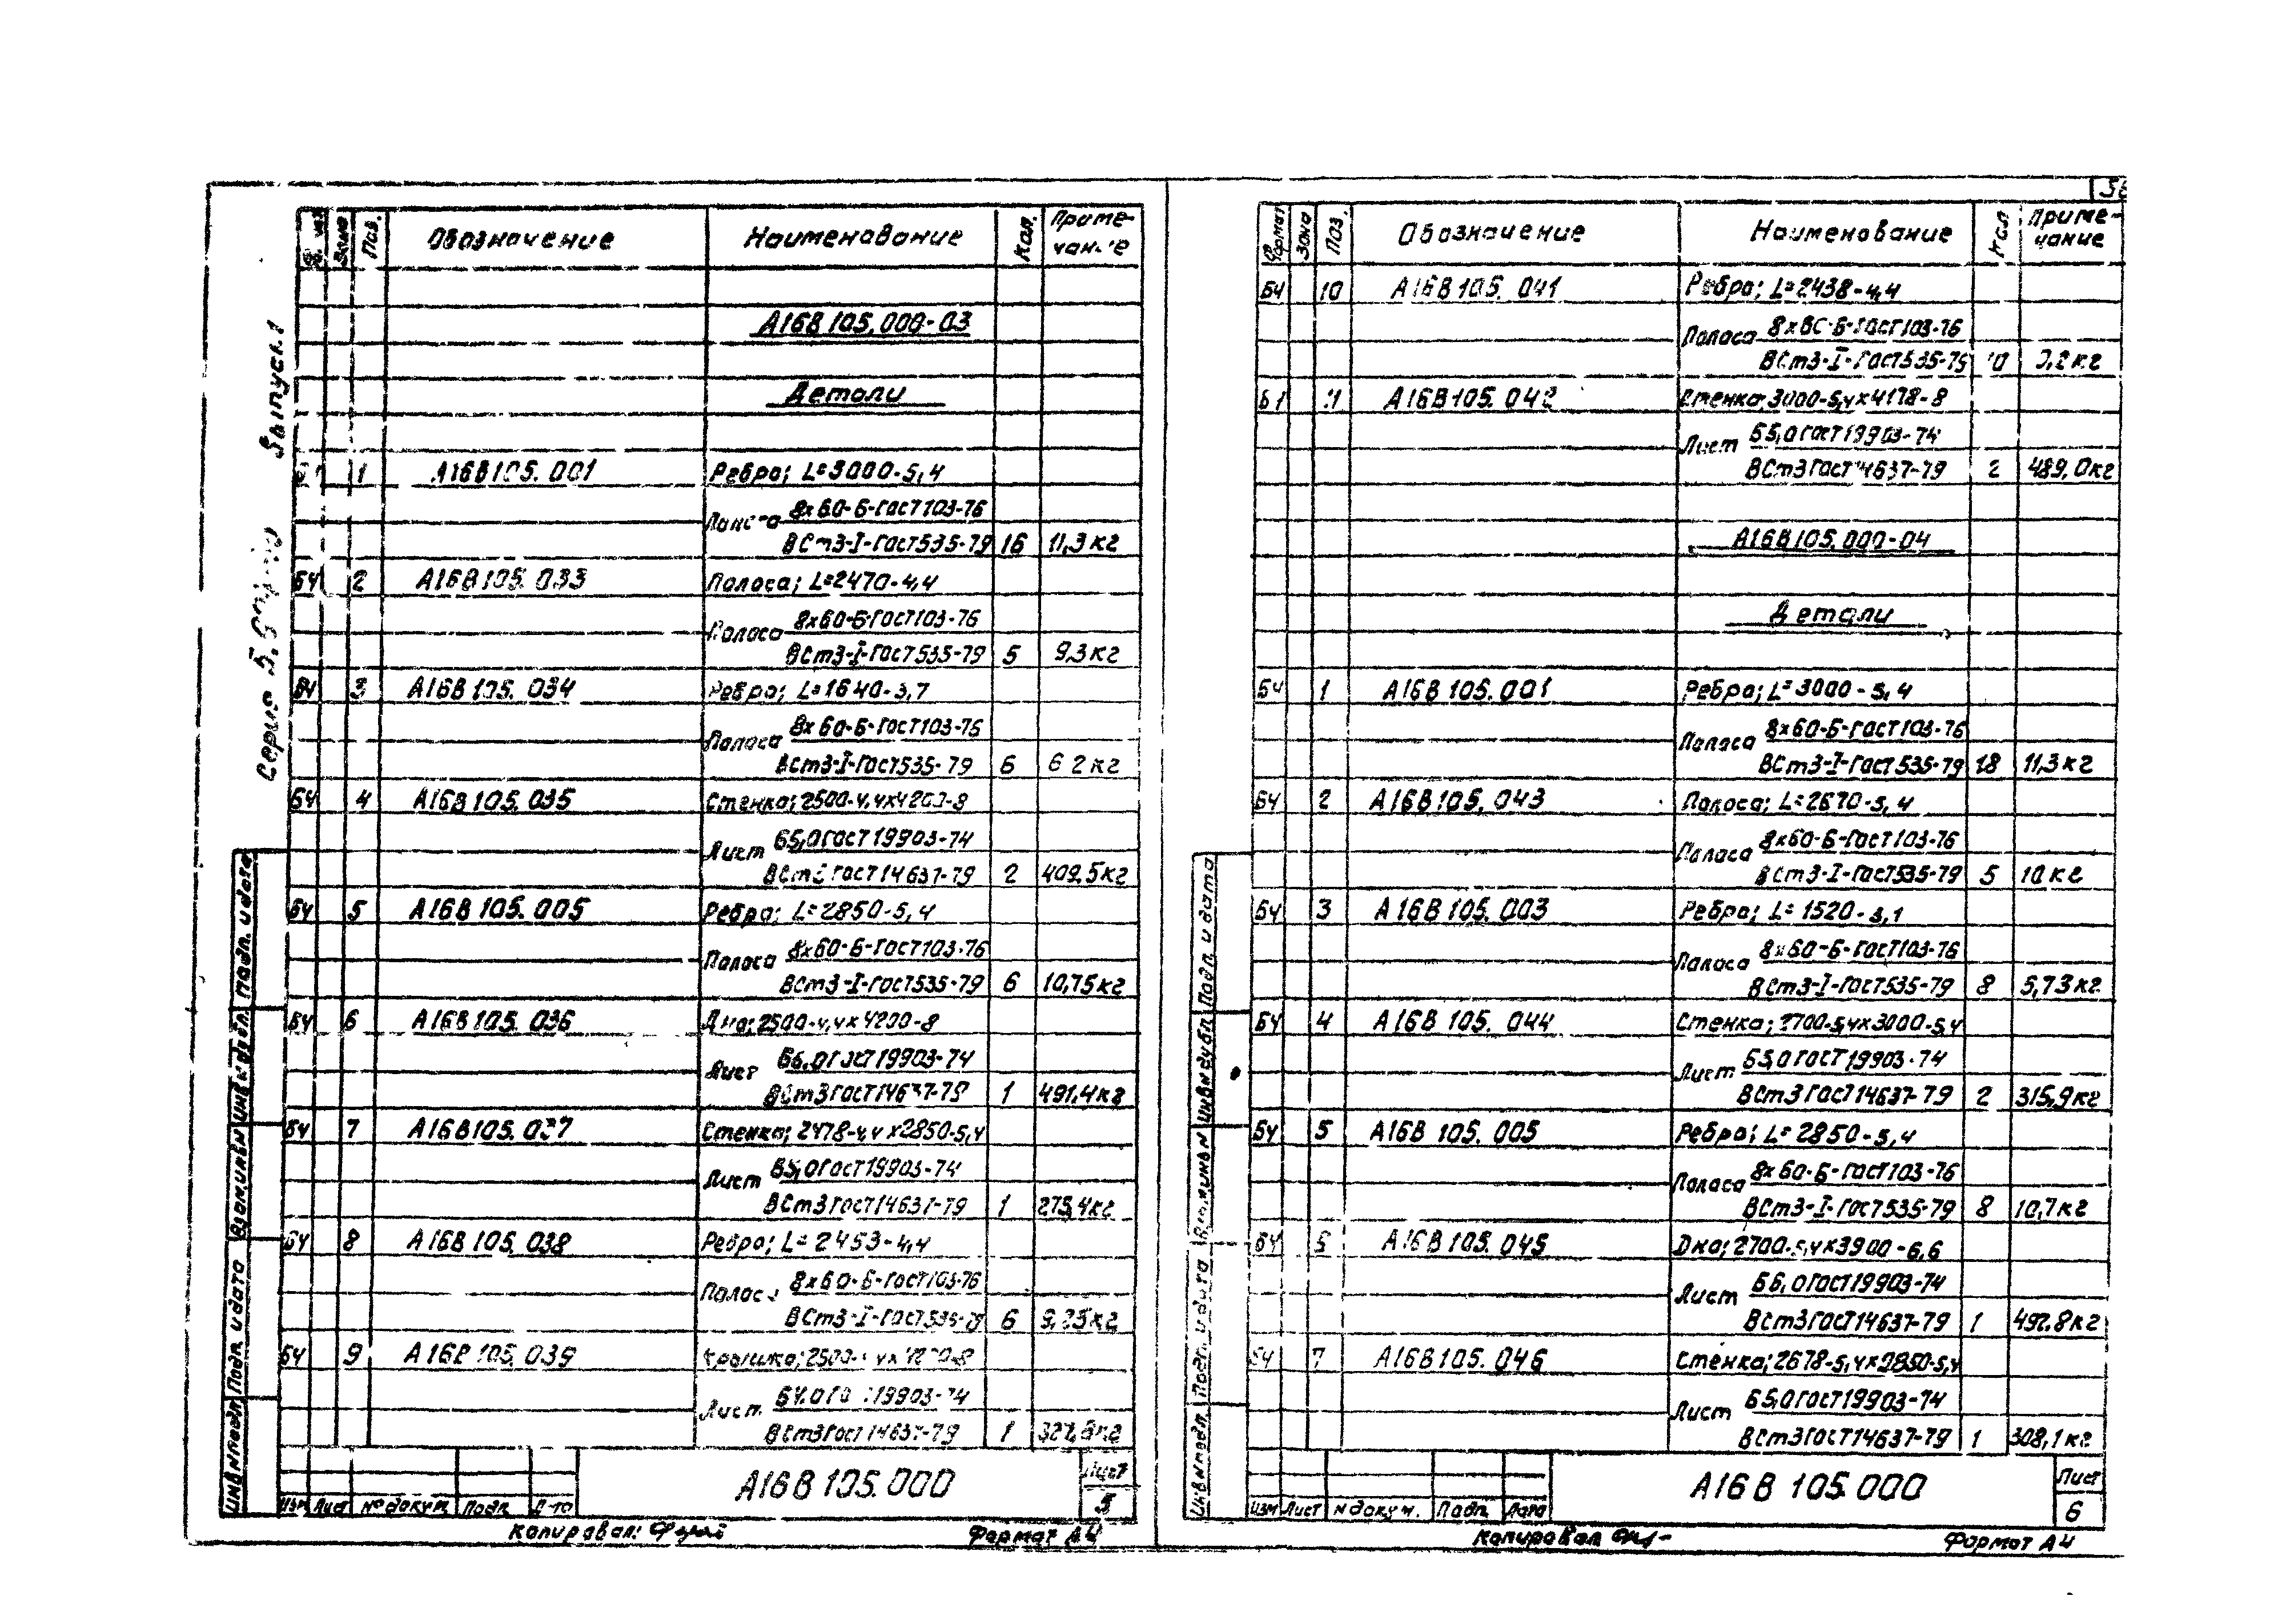 Серия 5.   Выпуск 1
Зона Поз. Обозначение Наименование Кол. Приме-
чание
А16В105.000-03
Детали
1 А16В105.001 Ребро; L=3000-5,4
Полоса 8х60-Б-ГОСТ103-76
ВСт3-I-ГОСТ535-79 16 11,3кг
БЧ 2 А16В105.033 Полоса; L=2470-4,4
Полоса 8х60-Б-ГОСТ103-76
ВСт3-I-ГОСТ535-79 5 9,3кг
БЧ 3 А16В105.034 Ребро; L=1640-3,7
Полоса 8х60-Б-ГОСТ103-76
ВСт3-I-ГОСТ535-79 6 6,2кг
БЧ 4 А16В105.035 Стенка; 2500-4,4х4200-8
Лист Б5,0ГОСТ19903-74
ВСт3ГОСТ14637-79 2 409,5кг
БЧ 5 А16В105.005 Ребро; L=2850-5,4
Полоса 8х60-Б-ГОСТ103-76
ВСт3-I-ГОСТ535-79 6 10,75кг
БЧ 6 А16В105.036 Дно; 2500-4,4х4200-8
Лист Б6,0ГОСТ19903-74
ВСт3ГОСТ14637-79 1 491,4кг
БЧ 7 А16В105.037 Стенка; 2478-4,4х2850-5,4
Лист Б5,0ГОСТ19903-74
ВСт3ГОСТ14637-79 1 275,4кг
БЧ 8 А16В105.038 Ребро; L=2453-4,4
Полоса 8х60-Б-ГОСТ103-76
ВСт3-I-ГОСТ535-79 6 9,25кг
БЧ 9 А16В105.039 Крышка; 2500-
Лист Б4,0ГОСТ19903-74
ВСт3ГОСТ14637-79 1
Инв№подл. Подп. и дата Взам.инв№ Инв№дубл. Подп. и дата
Изм Лист №докум. Подп. Дата
А16В105.000
Лист
5
Копировал:
Формат А4
Формат Зона Поз. Обозначение Наименование Кол Приме-
чание
БЧ 10 А16В105.041 Ребро; L=2438-4,4
Полоса 8х60-Б-ГОСТ103-76
ВСт3-I-ГОСТ535-79 10 9,2кг
БЧ 11 А16В105.042 Стенка; 3000-5,4х4178-8
Лист Б5,0ГОСТ19903-74
ВСт3ГОСТ14637-79 2 489,0кг
А16В105.000-04
Детали
БЧ 1 А16В105.001 Ребро; L=3000-5,4
Полоса 8х60-Б-ГОСТ103-76
ВСт3-I-ГОСТ535-79 18 11,3кг
БЧ 2 А16В105.043 Полоса; L=2670-5,4
Полоса 8х60-Б-ГОСТ103-76
ВСт3-I-ГОСТ535-79 5 10кг
БЧ 3 А16В105.003 Ребро; L=1520-3,1
Полоса 8х60-Б-ГОСТ103-76
ВСт3-I-ГОСТ535-79 8 5,73кг
БЧ 4 А16В105.044 Стенка; 2700-5,4х3000-5,4
Лист Б5,0ГОСТ19903-74
ВСт3ГОСТ14637-79 2 315,9кг
БЧ 5 А16В105.005 Ребро; L=2850-5,4
Полоса 8х60-Б-ГОСТ103-76
ВСт3-I-ГОСТ535-79 8 10,7кг
БЧ 6 А16В105.045 Дно; 2700-5,4х3900-6,6
Лист Б6,0ГОСТ19903-74
ВСт3ГОСТ14637-79 1 492,8кг
БЧ 7 А16В105.046 Стенка; 2678-5,4х2850-5,4
Лист Б5,0ГОСТ19903-74
ВСт3ГОСТ14637-79 1 308,1кг
Инв№подл. Подп. и дата Взам.инв№ Инв№дубл Подп. и дата
Изм Лист №докум. Подп. Дата
А16В105.000
Лист
6
Копировал
Формат А4